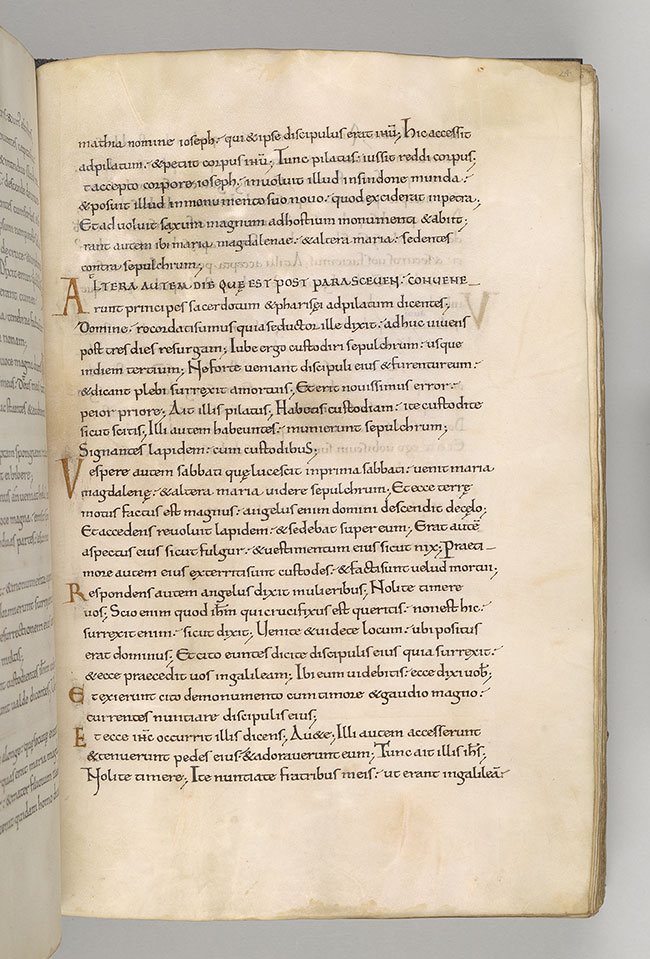 mathia nomine ioseph. qui & ipse discipulus erat ihu; Hic accessit
ad pilatum. & petiit corpus ihu; Tunc pilatus iussit reddi corpus;
t accepto corpore ioseph. inuoluit illud in sindone munda.
& posuit illud in monumento suo nouo. quod exciderat in petra;
Et aduoluit saxum magnum ad hostium monumenti & abiit;
rant autem ibi maria magdalenae. & altera maria. sedentes
contra sepulchrum;
ALTERA AUTEM DIE QUE EST POST PARASCEUEN. CONUENE
runt principes sacerdotum & pharisęi ad pilatum dicentes;
Domine. recordati sumus quia seductor ille dixit. adhuc uiuens
post tres dies resurgam; Iube ergo custodiri sepulchrum. usque
in diem tertium; Ne forte ueniant discipuli eius & furentur eum.
& dicant plebi surrexit a mortuis; Et erit nouissimus error.
peior priore; Ait illis pilatus; Habetis custodiam. ite custodite
sicut scitis; Illi autem habeuntes. munierunt sepulchrum;
Signantes lapidem. cum custodibus;
Vespere autem sabbati quę lucescit in prima sabbati. uenit maria
magdalenę. & altera maria uidere sepulchrum; Et ecce terrę
motus factus est magnus. angelus enim domini descendit de cęlo;
Et accedens reuoluit lapidem. & sedebat super eum; Erat autē
aspectus eius sicut fulgur. & uestimentum eius sicut nix; Praeti
more autem eius exterriti sunt custodes. & facti sunt uelud mortui;
Respondens autem angelus dixit mulieribus; Nolite timere
uos; Scio enim quod ihm qui crucifixus est queritis. non est hic.
surrexit enim. sicut dixit; Uenite & uidete locum. ubi positus
erat dominus; Et cito euntes dicite discipulis eius quia surrexit.
& ecce praecedit uos in galileam; Ibi eum uidebitis. ecce dixi uob;
Et exierunt cito de monumento cum timore & gaudio magno.
currentes nuntiare discipulis eius;
Et ecce ihc occurrit illis dicens; Au&e; Illi autem accesserunt
& tenuerunt pedes eius. & adorauerunt eum; Tunc ait illis ihs;
Nolite timere; Ite nuntiate fratribus meis. ut erant in galileā.